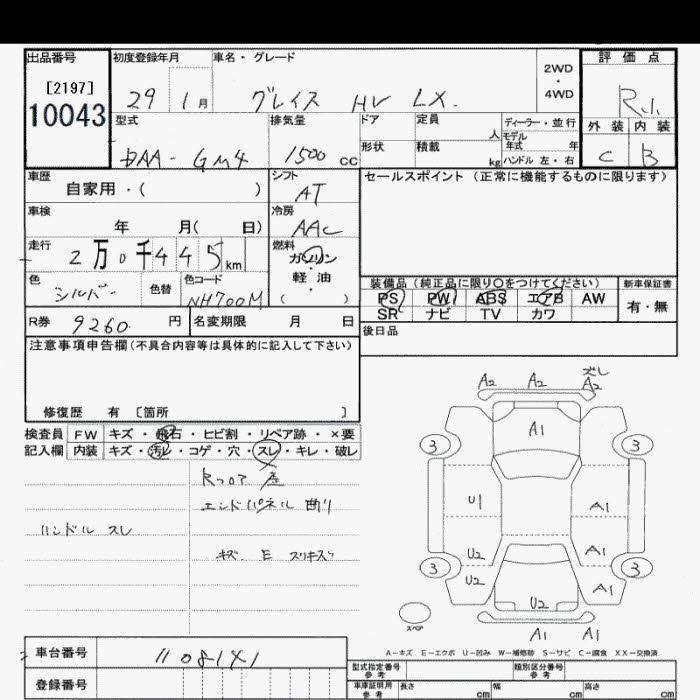 出品番号 初度登録年月 車名・グレード 2WD ・ 4WD 評価点
[2197] 29 1月 グレイス HV LX. R.1.
10043 型式 排気量 ドア 定員 人 ディーラー・並行 外装 内装
DAA-GM4 1500cc 形状 積載 kg モデル年式 年 ハンドル 左・右 C B
車歴 自家用・( ) シフト AT セールスポイント (正常に機能するものに限ります)
車検 年 月( 日) 冷房 AAC
走行 2万0千445km 燃料 ガソリン・軽油 ( )
色 シルバー 色替 色コード NH700M 装備品 (純正品に限り○をつけてください) 新車保証書
PS PW ABS エアB AW 有・無
SR ナビ TV カワ
R券 9260円 名変期限 月 日 後日品
注意事項申告欄(不具合内容等は具体的に記入して下さい)
修復歴 有 〔箇所 〕
検査員 FW キズ・飛石・ヒビ割・リペア跡・×要
記入欄 内装 キズ・汚レ・コゲ・穴・スレ・キレ・破レ
Rフロア
エンドパネル 曲り
ハンドル スレ
キズ E スリキズ
A2 A2 A2
A1
3 3
U1 A1
U2 A1
3 3
U2 A1
U2
スペア
A1 A1
A-キズ E-エクボ U-凹み W-補修跡 S-サビ C-腐食 XX-交換済
車台番号 1108141
登録番号
型式指定番号 参考 類別区分番号 参考
車庫証明用 参考 長さ cm 幅 cm 高さ cm